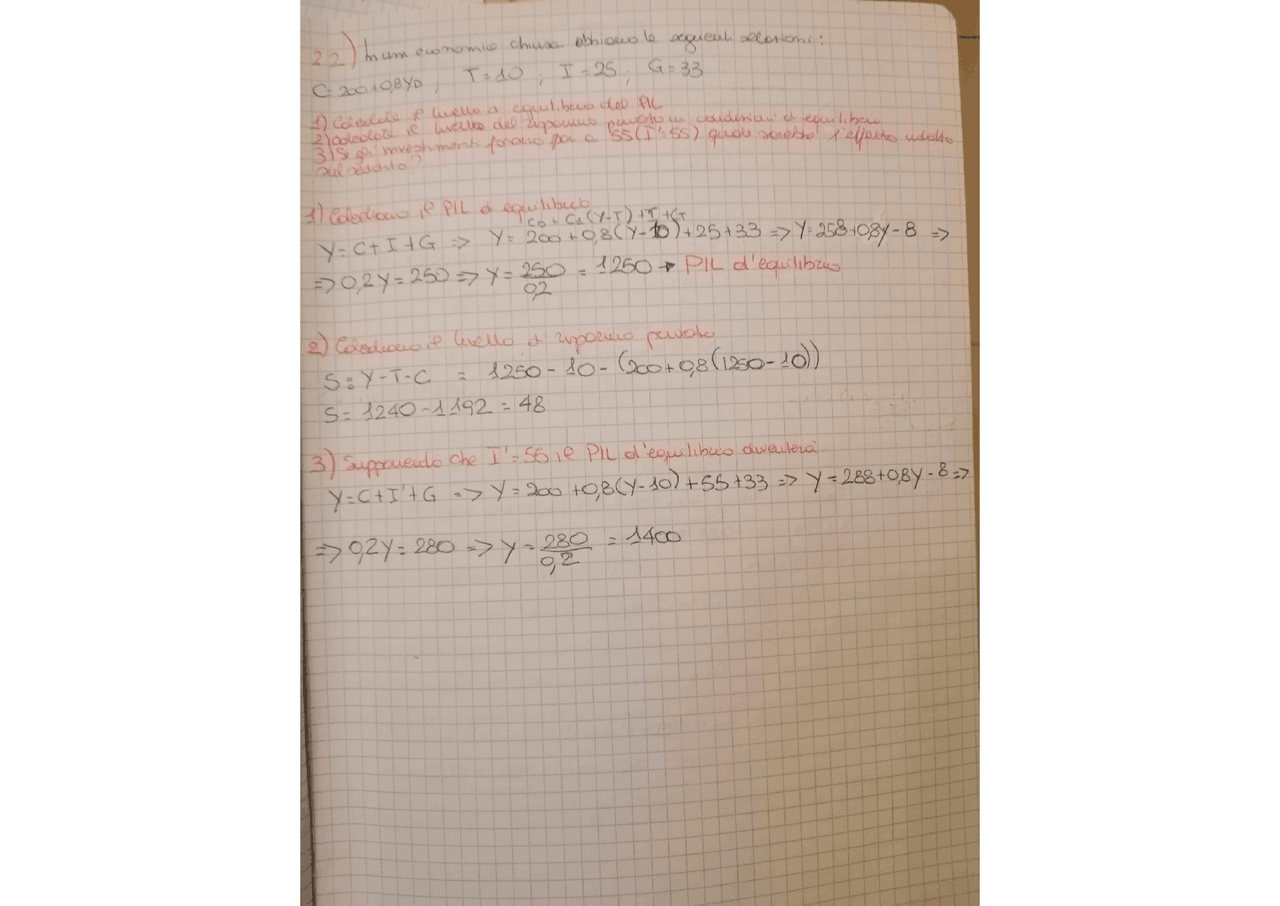 2.2) In un economia chiusa abbiamo le seguenti relazioni:
C=200+0,8YD; T=10; I=25; G=33
1) Calcolate il livello di equilibrio del PIL
2) calcolate il livello del risparmio privato in condizioni di equilibrio
3) Se gli investimenti fossero pari a 55 (I'=55) quale sarebbe l'effetto indotto
sul reddito?
1) Calcoliamo il PIL di equilibrio
C0 + C1(Y-T)+I+G
Y=C+I+G => Y= 200+0,8(Y-10)+25+33 => Y=258+0,8Y-8 =>
=> 0,2Y=250 => Y=250/0,2 = 1250 → PIL d'equilibrio
2) Calcoliamo il livello di risparmio privato
S=Y-T-C = 1250-10-(200+0,8(1250-10))
S= 1240-1192=48
3) Supponendo che I'=55 il PIL d'equilibrio diventerà
Y=C+I'+G => Y=200+0,8(Y-10)+55+33 => Y=288+0,8Y-8 =>
=> 0,2Y=280 => Y=280/0,2 = 1400